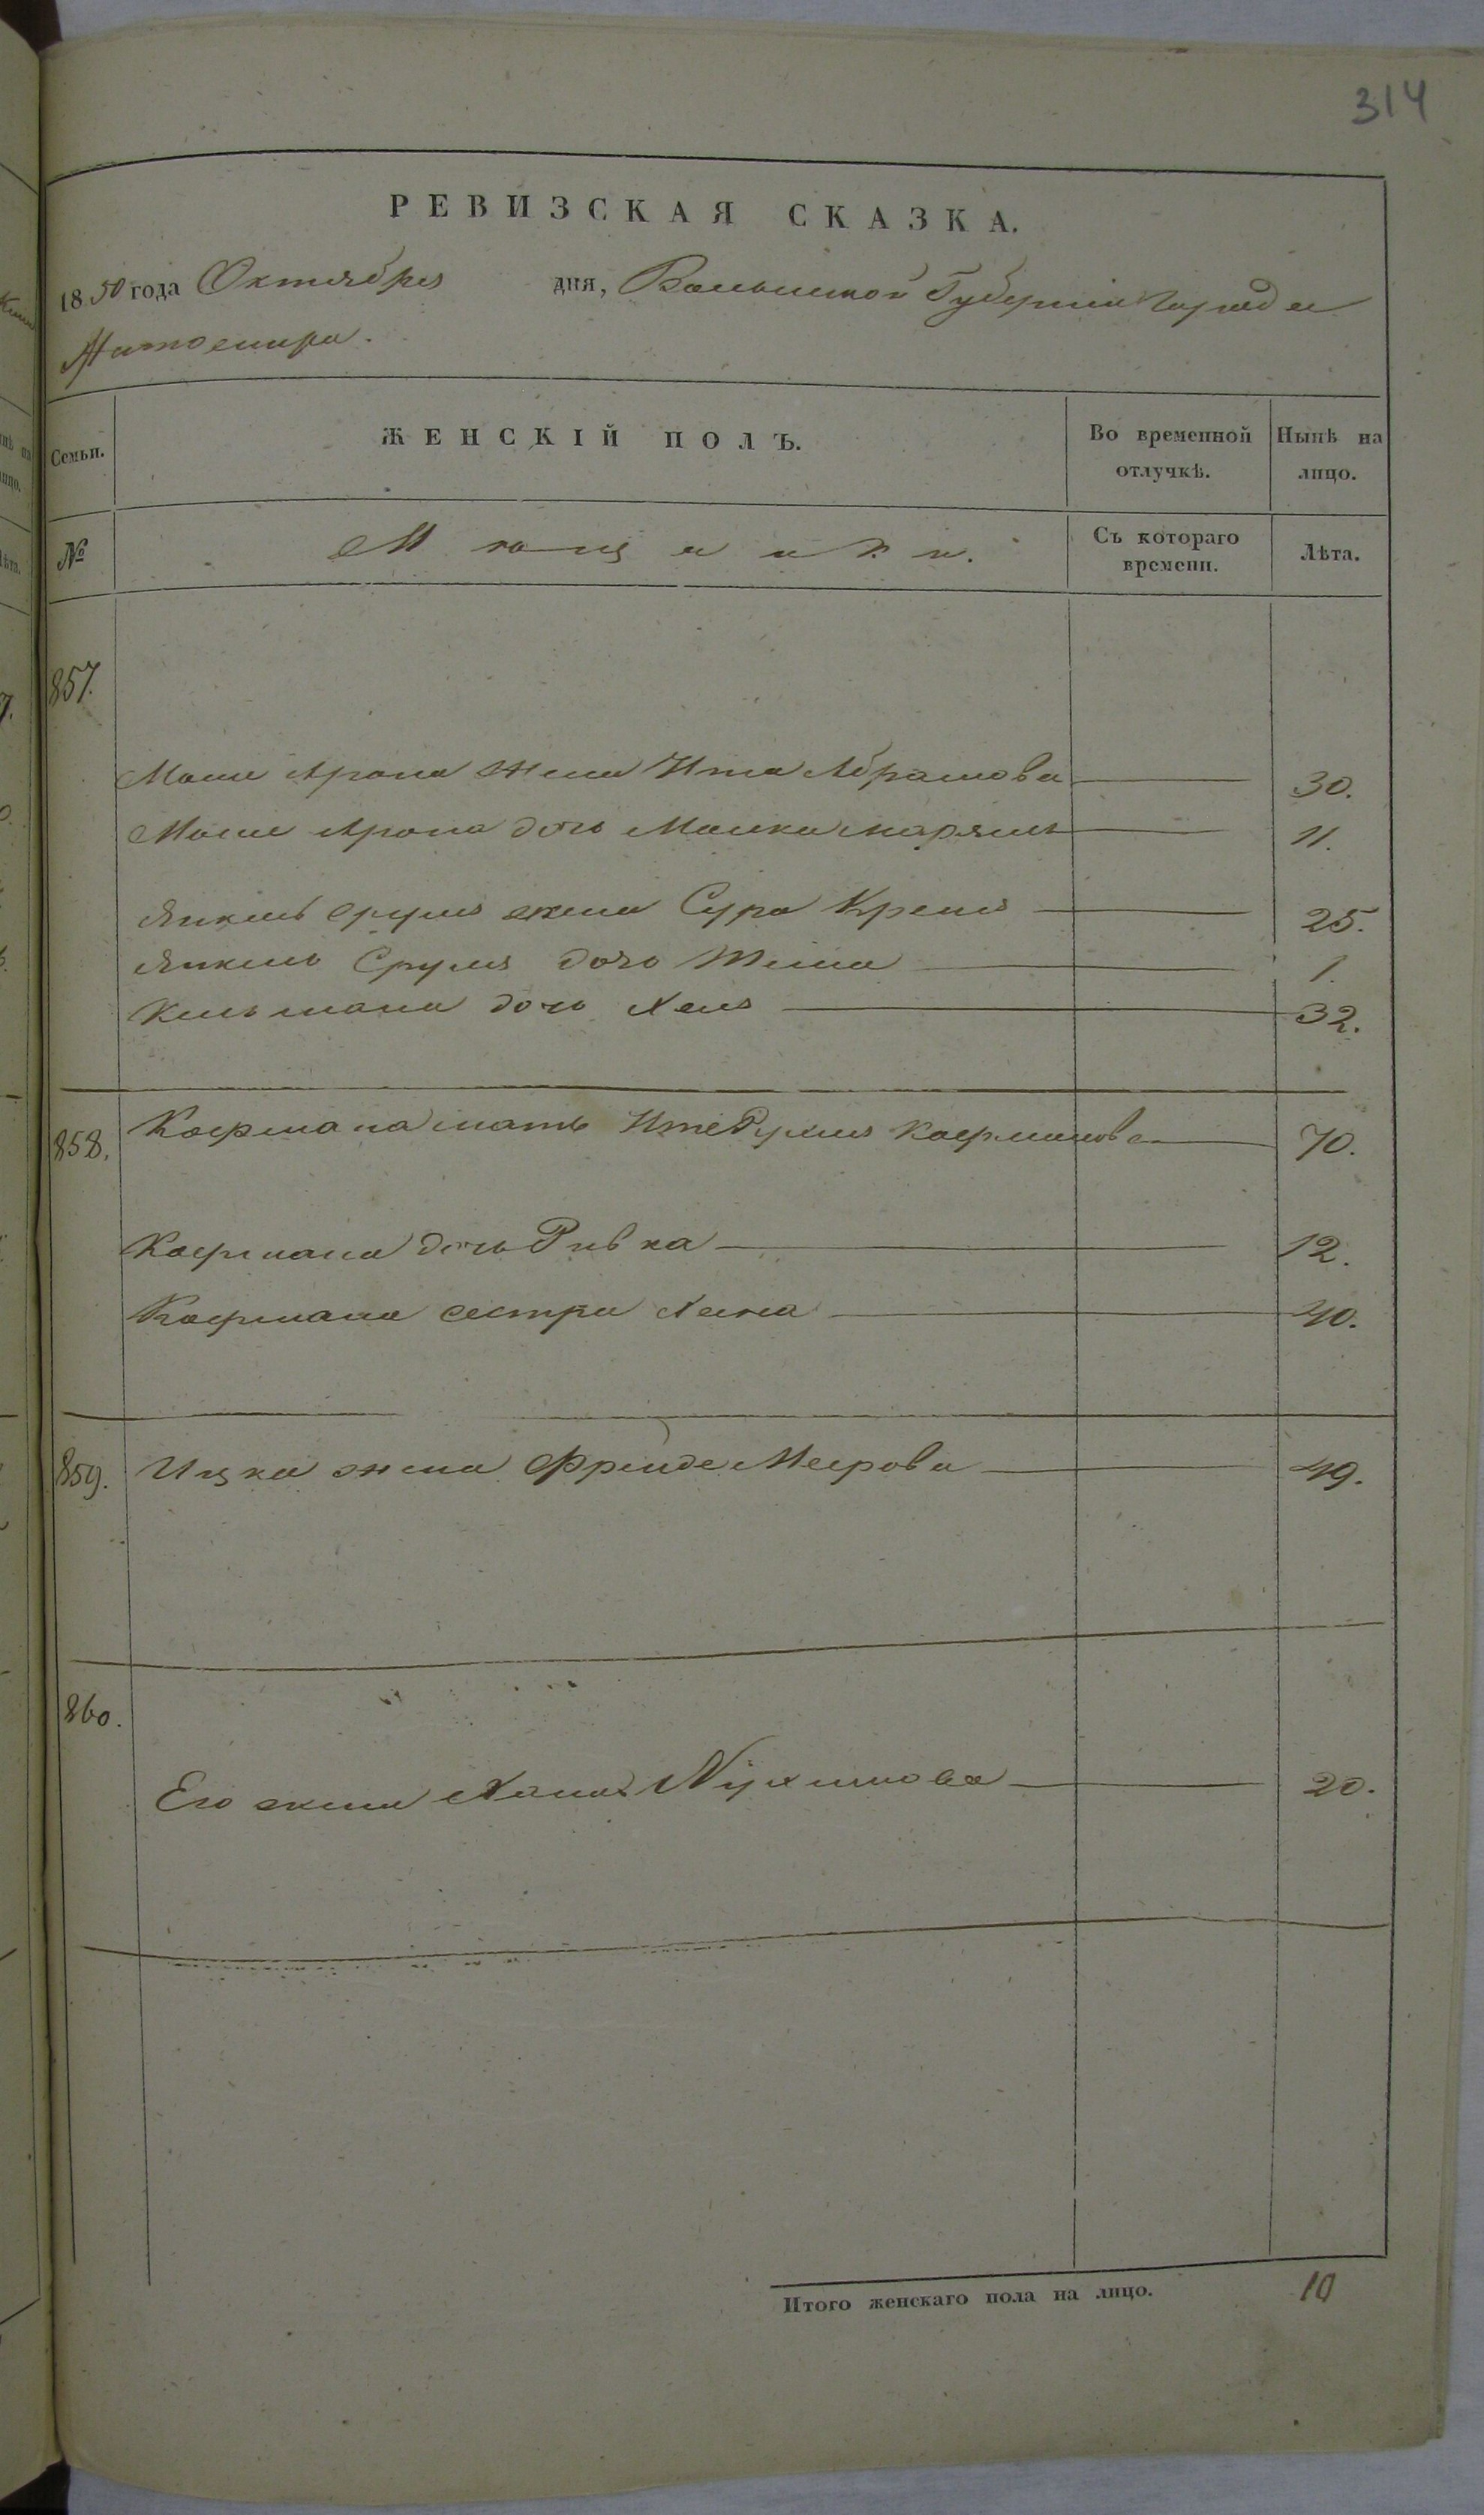 314
РЕВИЗСКАЯ СКАЗКА.
1850 года Октября дня, Волынской Губерніи города
Житомира.
Семьи. ЖЕНСКІЙ ПОЛЪ. Во временной отлучкѣ. Нынѣ на лицо.
№ Мѣщанъ. Съ котораго времени. Лѣта.
857.
Мошк Арона жена Ита Абрамова 30.
Мошк Арона дочь Малка Марямъ 11.
Янкель Сруля жена Сура Крейня 25.
Янкель Сруля дочь 1.
Кельмана дочь Хая 32.
858. Кофмана мать Кофманова 70.
Кофмана дочь Ривка 12.
Кофмана сестра Хана 40.
859. Ицка жена Фрейде Меерова 49.
860.
Его жена Хана Нухимова 20.
Итого женскаго пола на лицо. 10